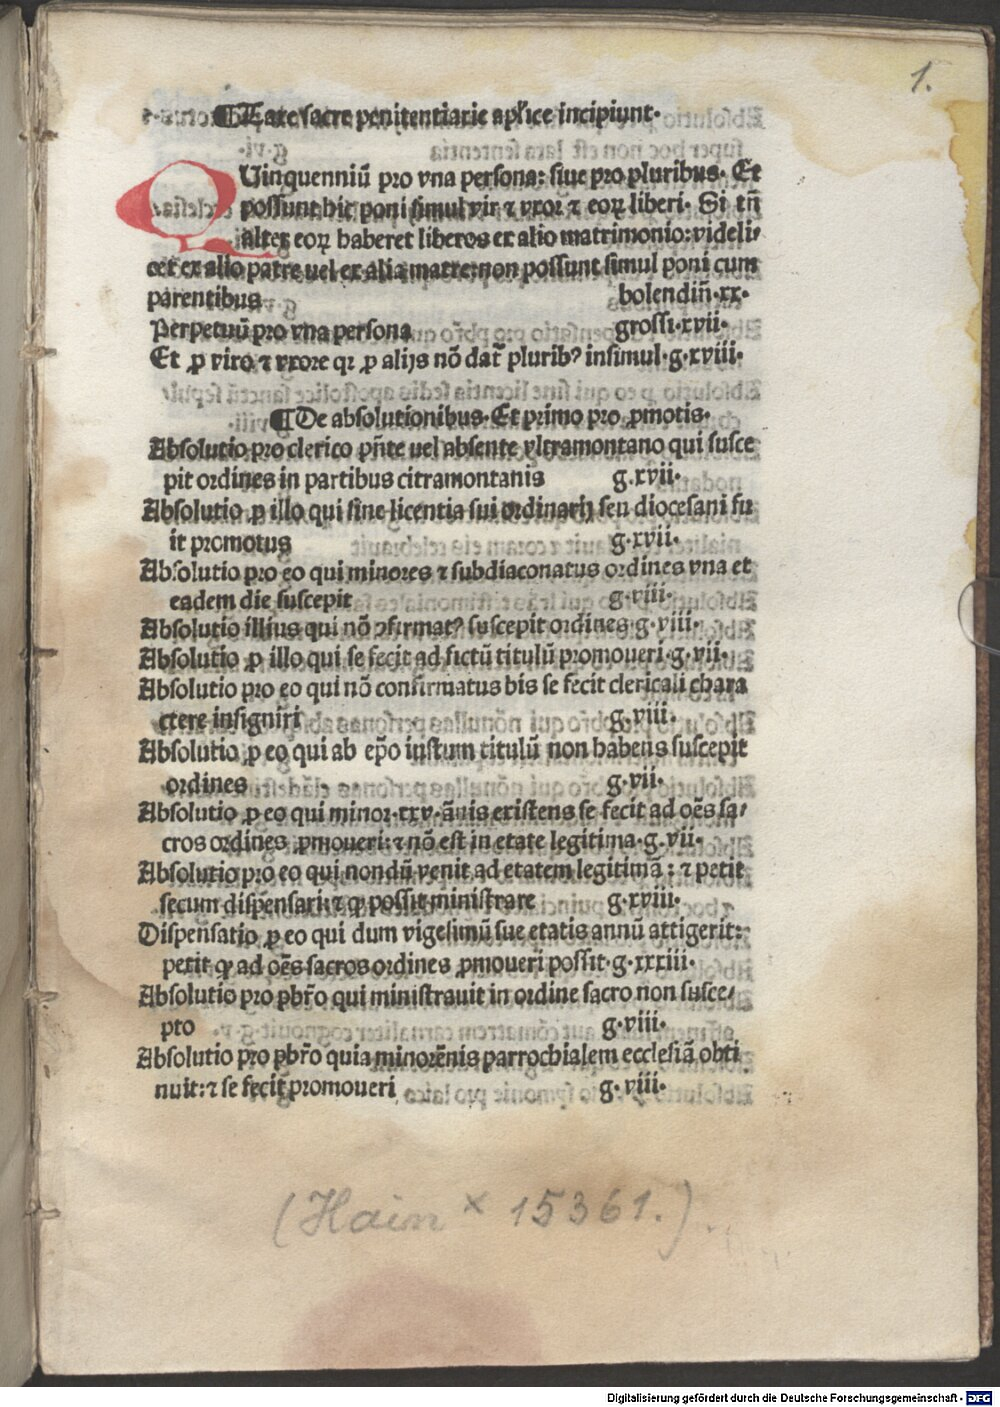 1.
¶Taxe sacre penitentiarie aplʼice incipiunt·
QUinquenniū pro vna persona: siue pro pluribus· Et
possunt hic poni simul vir ⁊ vxor ⁊ eoꝝ liberi· Si tn̄
alter eoꝝ haberet liberos ex alio matrimonio: videli/
cet ex alio patre uel ex alia matre: non possunt simul poni cum
parentibus bolendin̄·xx·
Perpetuū pro vna persona grossi·xvii·
Et ꝓ viro ⁊ vxore qꝛ ꝓ alijs nō dat̄ pluribꝰ insimul·g·xviii·
¶De absolutionibus·Et primo pro ꝓmotis·
Absolutio pro clerico pn̄te uel absente vltramontano qui susce
pit ordines in partibus citramontanis g.xvii·
Absolutio ꝓ illo qui sine licentia sui ordinarij seu diocesani fu
it promotus g·xvii·
Absolutio pro eo qui minores ⁊ subdiaconatus ordines vna et
eadem die suscepit g·viii·
Absolutio illius qui nō ↄfirmatꝰ suscepit ordines·g·viii·
Absolutio ꝓ illo qui se fecit ad fictū titulū promoueri·g·vii·
Absolutio pro eo qui nō confirmatus bis se fecit clericali chara
ctere insigniri g·viii·
Absolutio ꝓ eo qui ab ep̄o iustum titulū non habens suscepit
ordines g·vii·
Absolutio ꝓ eo qui minor·xxv·ānis existens se fecit ad oēs sa/
cros ordines ꝓmoueri: ⁊ nō est in etate legitima·g·vii·
Absolutio pro eo qui nondū venit ad etatem legitimā: ⁊ petit
secum dispensari: ⁊ ꝙ possit ministrare g·xviii·
Dispensatio ꝓ eo qui dum vigesimū sue etatis annū attigerit:
petit ꝙ ad oēs sacros ordines ꝓmoueri possit·g·xxxiii·
Absolutio pro pb̄ro qui ministrauit in ordine sacro non susce/
pto g·viii·
Absolutio pro pb̄ro quia minorēnis parrochialem ecclesiā obti
nuit: ⁊ se fecit promoueri g·viii·
(Hain × 15361.)
Digitalisierung gefördert durch die Deutsche Forschungsgemeinschaft - DFG